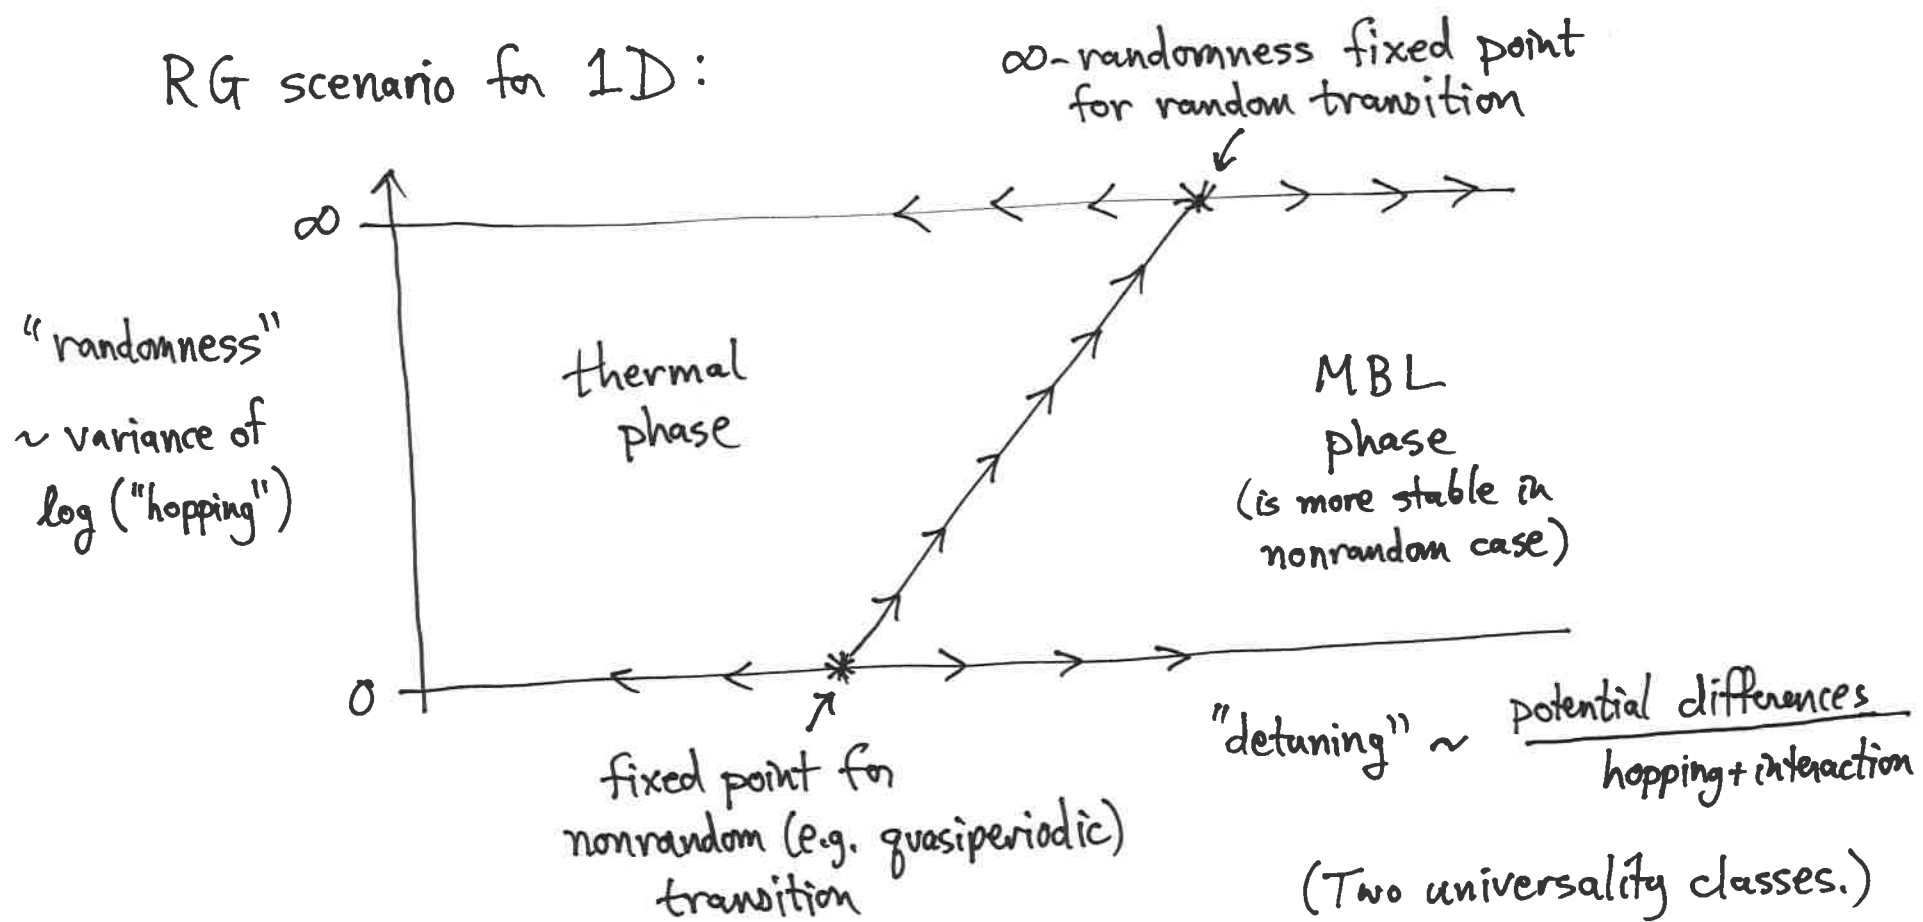 RG scenario for 1D:
∞-randomness fixed point
for random transition
∞
"randomness"
~ variance of
log ("hopping")
thermal
phase
MBL
phase
(is more stable in
nonrandom case)
0
fixed point for
nonrandom (e.g. quasiperiodic)
transition
"detuning" ~ potential differences
hopping + interaction
(Two universality classes.)